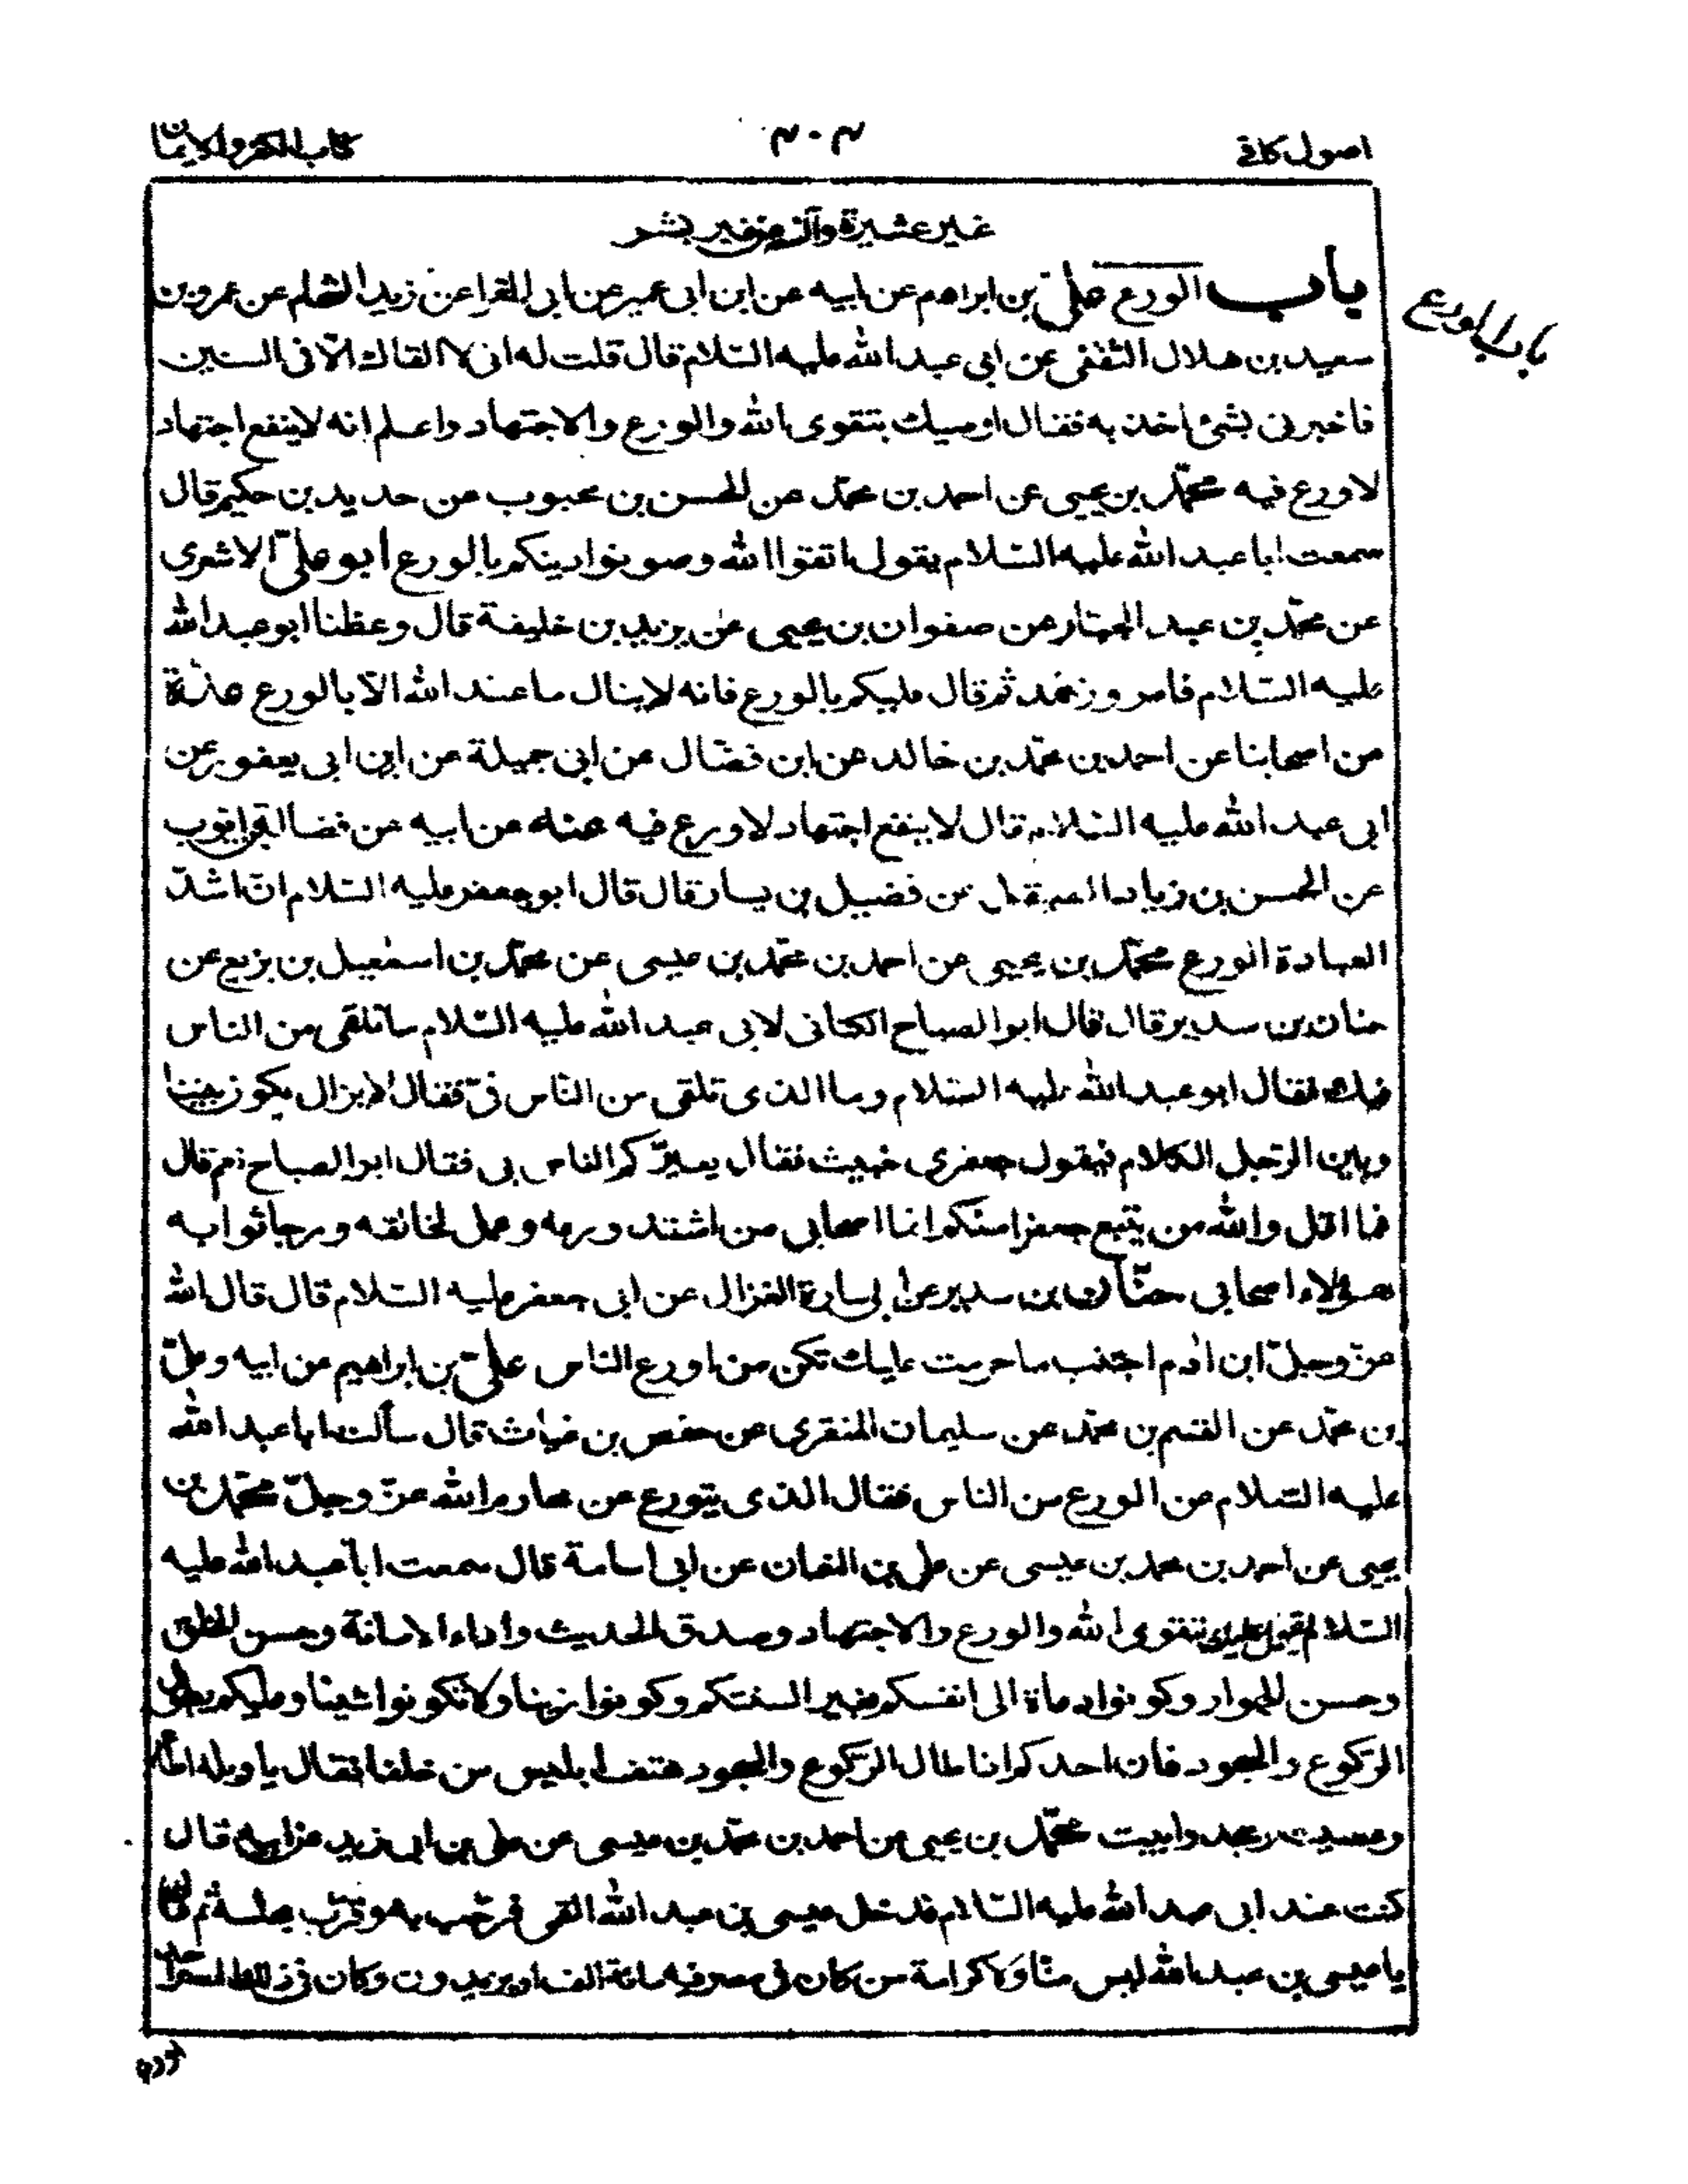 اصول كافى
٣٠٣
كتاب الكفر والايمان
غير عشيرة وآنس من غير بشر
باب الورع
باب الورع على بن ابراهيم عن ابيه عن ابن ابى عمير عن ابى المغرا عن زيد الشحام عن عمرو بن
سعيد بن هلال الثقفى عن ابى عبد الله عليه السلام قال قلت له انى لا القاك الا فى السنين
فاخبرنى بشئ اخذ به فقال اوصيك بتقوى الله والورع والاجتهاد واعلم انه لا ينفع اجتهاد
لا ورع فيه محمد بن يحيى عن احمد بن محمد عن الحسن بن محبوب عن حديد بن حكيم قال
سمعت ابا عبد الله عليه السلام يقول اتقوا الله وصونوا دينكم بالورع أبو على الاشعرى
عن محمد بن عبد الجبار عن صفوان بن يحيى عن يزيد بن خليفة قال وعظنا ابو عبد الله
عليه السلام فامر وزهد ثم قال عليكم بالورع فانه لا ينال ما عند الله الا بالورع عدة
من اصحابنا عن احمد بن محمد بن خالد عن ابن فضال عن ابى جميلة عن ابن ابى يعفور عن
ابى عبد الله عليه السلام قال لا ينفع اجتهاد لا ورع فيه عنه عن ابيه عن فضالة بن ايوب
عن الحسن بن زياد الصيقل عن فضيل بن يسار قال قال ابو جعفر عليه السلام ان اشد
العبادة الورع محمد بن يحيى عن احمد بن محمد بن عيسى عن محمد بن اسمعيل بن بزيع عن
حنان بن سدير قال قال ابو الصباح الكنانى لابى عبد الله عليه السلام ما نلقى من الناس
فيك فقال ابو عبد الله عليه السلام وما الذى تلقى من الناس فى فقال لا يزال يكون بيننا
وبين الرجل الكلام فيقول جعفرى خبيث فقال يعيركم الناس بى فقال ابو الصباح نعم قال
فما اقل والله من يتبع جعفرا منكم انما اصحابى من اشتد ورعه وعمل لخالقه ورجا ثوابه
هؤلاء اصحابى حنان بن سدير عن ابى سارة الغزال عن ابى جعفر عليه السلام قال قال الله
عز وجل ابن ادم اجتنب ما حرمت عليك تكن من اورع الناس على بن ابراهيم عن ابيه وعلى
بن محمد عن القسم بن محمد عن سليمان المنقرى عن حفص بن غياث قال سألت ابا عبد الله
عليه السلام عن الورع من الناس فقال الذى يتورع عن محارم الله عز وجل محمد بن
يحيى عن احمد بن محمد بن عيسى عن على بن النعمان عن ابى اسامة قال سمعت ابا عبد الله عليه
السلام يقول عليك بتقوى الله والورع والاجتهاد وصدق الحديث واداء الامانة وحسن الخلق
وحسن الجوار وكونوا دعاة الى انفسكم بغير السنتكم وكونوا زينا ولا تكونوا شينا وعليكم بطول
الركوع والسجود فان احدكم اذا طال الركوع والسجود هتف ابليس من خلفه فقال يا ويله اطاع
وعصيت وسجد وابيت محمد بن يحيى عن احمد بن محمد بن عيسى عن على بن ابى زيد عن ابيه قال
كنت عند ابى عبد الله عليه السلام فدخل عيسى بن عبد الله القمى فرحب به وقرب مجلسه ثم قال
يا عيسى بن عبد الله ليس منا ولا كرامة من كان فى مصر فيه مائة الف او يزيدون وكان فى ذلك المصر احد